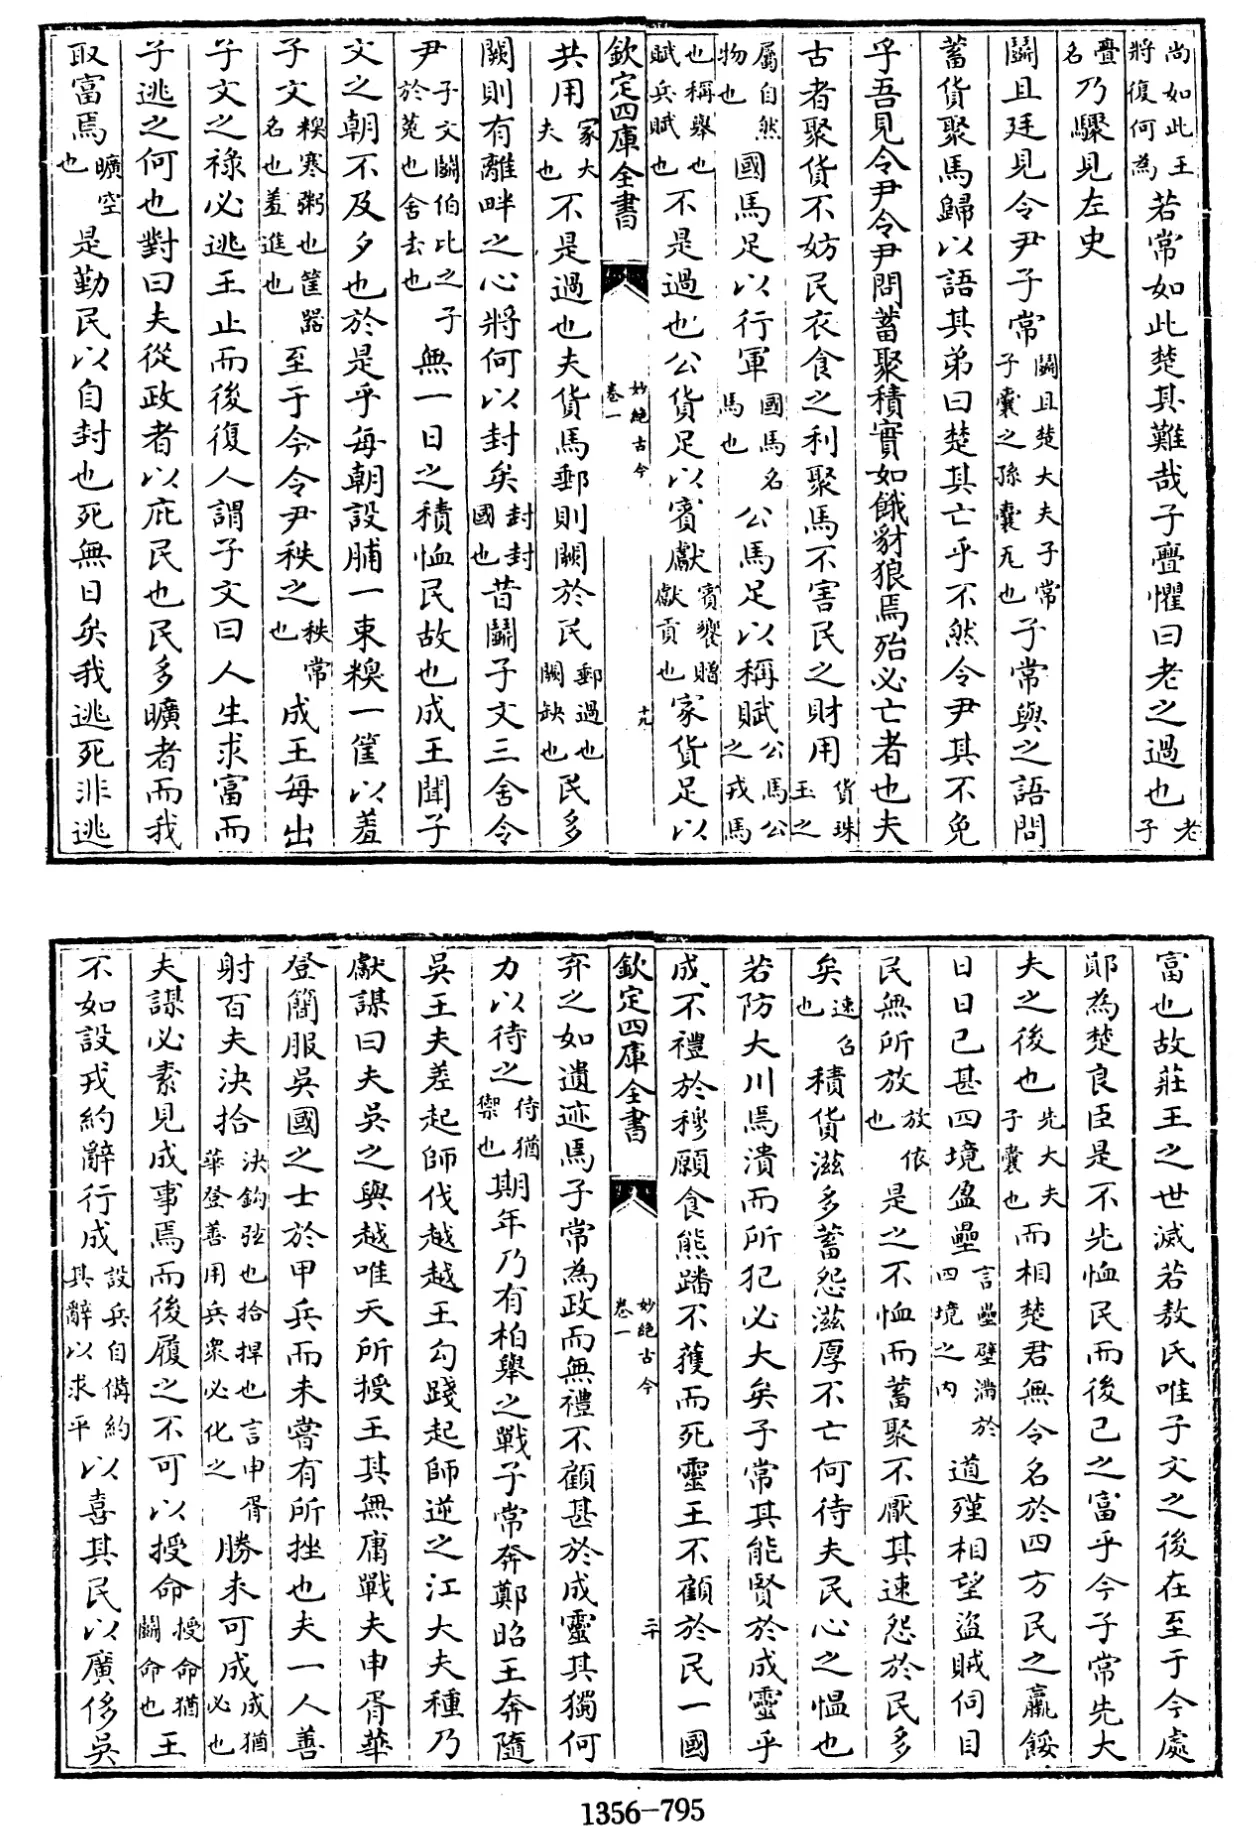 尚如此王將復何為若常如此楚其難哉子亹懼曰老之過也老子
亹名乃驟見左史
鬭且廷見令尹子常鬭且楚大夫子常子囊之孫囊瓦也子常與之語問
蓄貨聚馬歸以語其弟曰楚其亡乎不然令尹其不免
乎吾見令尹令尹問蓄聚積實如餓豺狼焉殆必亡者也夫
古者聚貨不妨民衣食之利聚馬不害民之財用貨珠玉之
屬自然物也國馬足以行軍國馬名馬也公馬足以稱賦公馬公之戎馬
也稱舉也賦兵賦也不是過也公貨足以賓獻賓饗贈獻貢也家貨足以
欽定四庫全書 妙絶古今 卷一 十九
共用家大夫也不是過也夫貨馬郵則闕於民郵過也闕缺也民多
闕則有離畔之心將何以封矣封封國也昔鬭子文三舍令
尹子文鬭伯比之子於菟也舍去也無一日之積恤民故也成王聞子
文之朝不及夕也於是乎每朝設脯一束糗一筐以羞
子文糗寒粥也筐器名也羞進也至于今令尹秩之秩常也成王每出
子文之祿必逃王止而後復人謂子文曰人生求富而
子逃之何也對曰夫從政者以庇民也民多曠者而我
取富焉曠空也是勤民以自封也死無日矣我逃死非逃
富也故莊王之世滅若敖氏唯子文之後在至于今處
鄖為楚良臣是不先恤民而後己之富乎今子常先大
夫之後也先大夫子囊也而相楚君無令名於四方民之羸餒
日日已甚四境盈壘言壘壁滿於四境之內道殣相望盜賊伺目
民無所放放依也是之不恤而蓄聚不厭其速怨於民多
矣速召也積貨滋多蓄怨滋厚不亡何待夫民心之慍也
若防大川焉潰而所犯必大矣子常其能賢於成靈乎
成不禮於穆願食熊蹯不獲而死靈王不顧於民一國
欽定四庫全書 妙絶古今 卷一 二十
弃之如遺迹焉子常為政而無禮不顧甚於成靈其獨何
力以待之待猶禦也期年乃有柏舉之戰子常奔鄭昭王奔隨
吳王夫差起師伐越越王勾踐起師逆之江大夫種乃
獻謀曰夫吳之與越唯天所授王其無庸戰夫申胥華
登簡服吳國之士於甲兵而未嘗有所挫也夫一人善
射百夫決拾決鈎弦也拾捍也言申胥華登善用兵衆必化之勝未可成成猶必也
夫謀必素見成事焉而後履之不可以授命授命猶鬭命也王
不如設戎約辭行成設兵自備約其辭以求平以喜其民以廣侈吳
1356-795